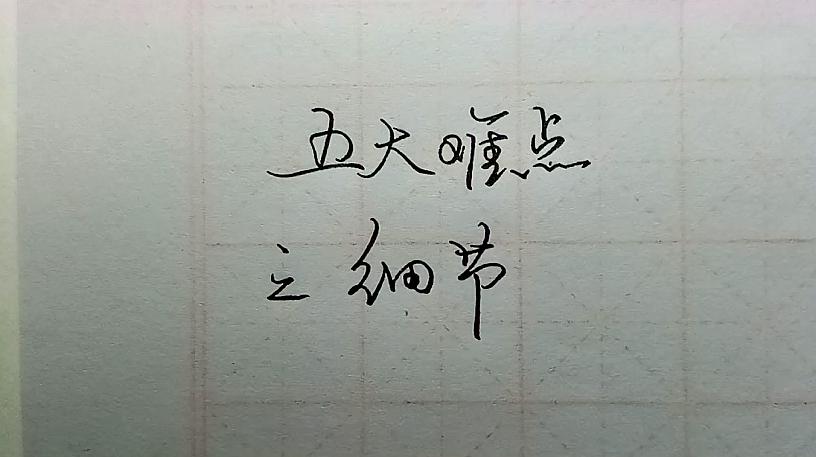 五大难点
之细节